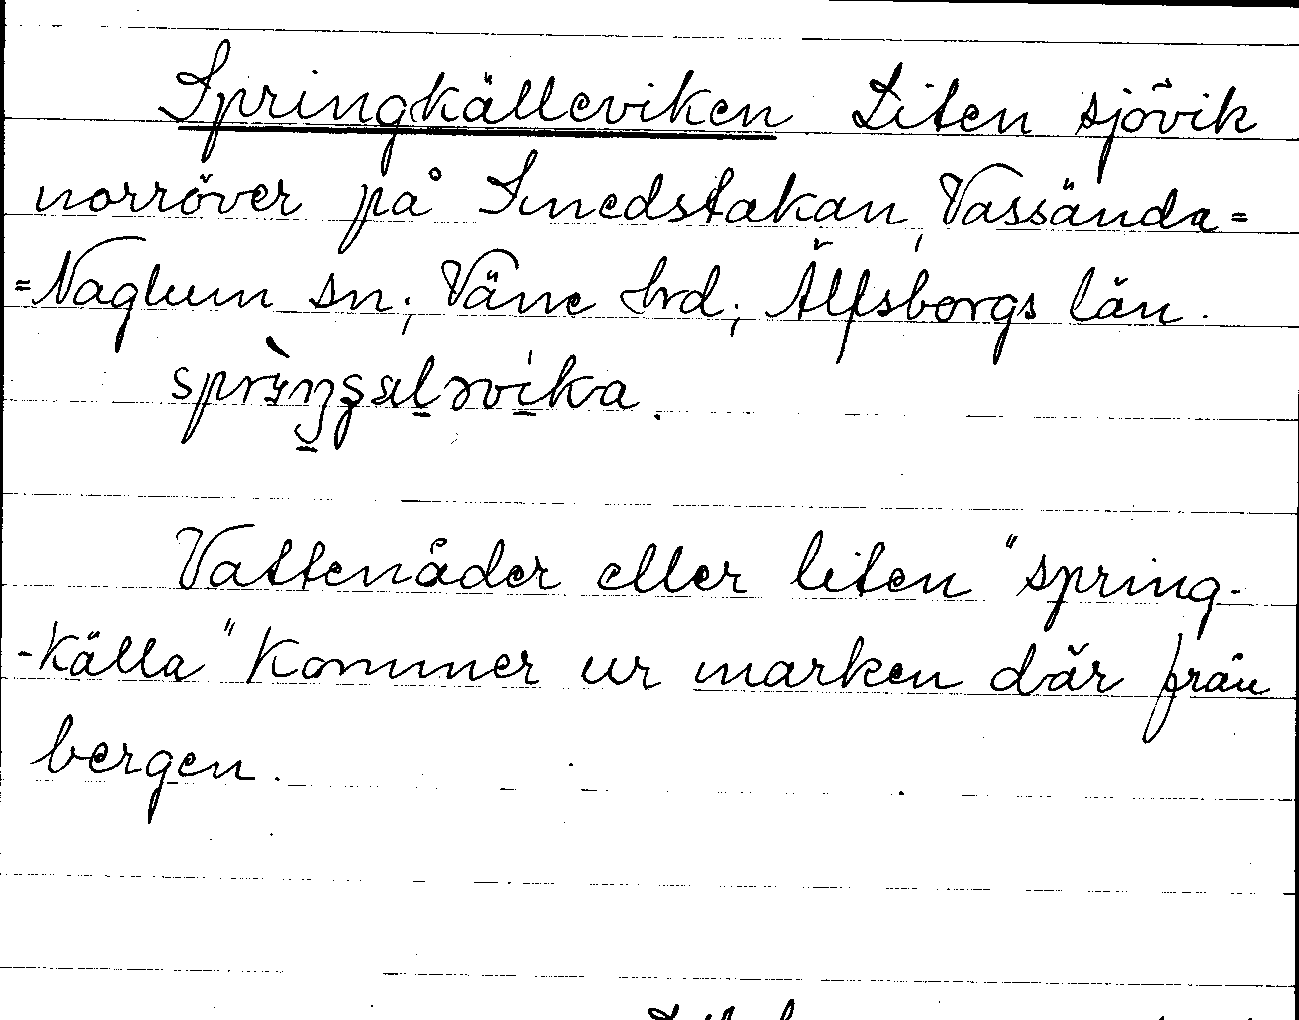 Springkälleviken Liten sjövik
norröver på Smedstakan, Vassända=
=Naglum sn; Väne hrd; Älfsborgs län.
Vattenåder eller liten "spring-
-källa" kommer ur marken där från
bergen.